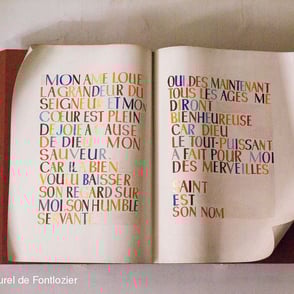 MON AME LOUE
LA GRANDEUR DU
SEIGNEUR ET MON
CŒUR EST PLEIN
DE JOIE A CAUSE
DE DIEU MON
SAUVEUR
CAR IL A BIEN
VOULU BAISSER
SON REGARD SUR
MOI. SON HUMBLE
SERVANTE
OUI DES MAINTENANT
TOUS LES AGES ME
DIRONT
BIENHEUREUSE
CAR DIEU
LE TOUT-PUISSANT
A FAIT POUR MOI
DES MERVEILLES
SAINT
EST
SON NOM
urel de Fontlozier